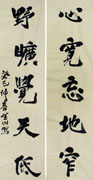 心寬忘地窄
野曠覺天低
癸巳仲春